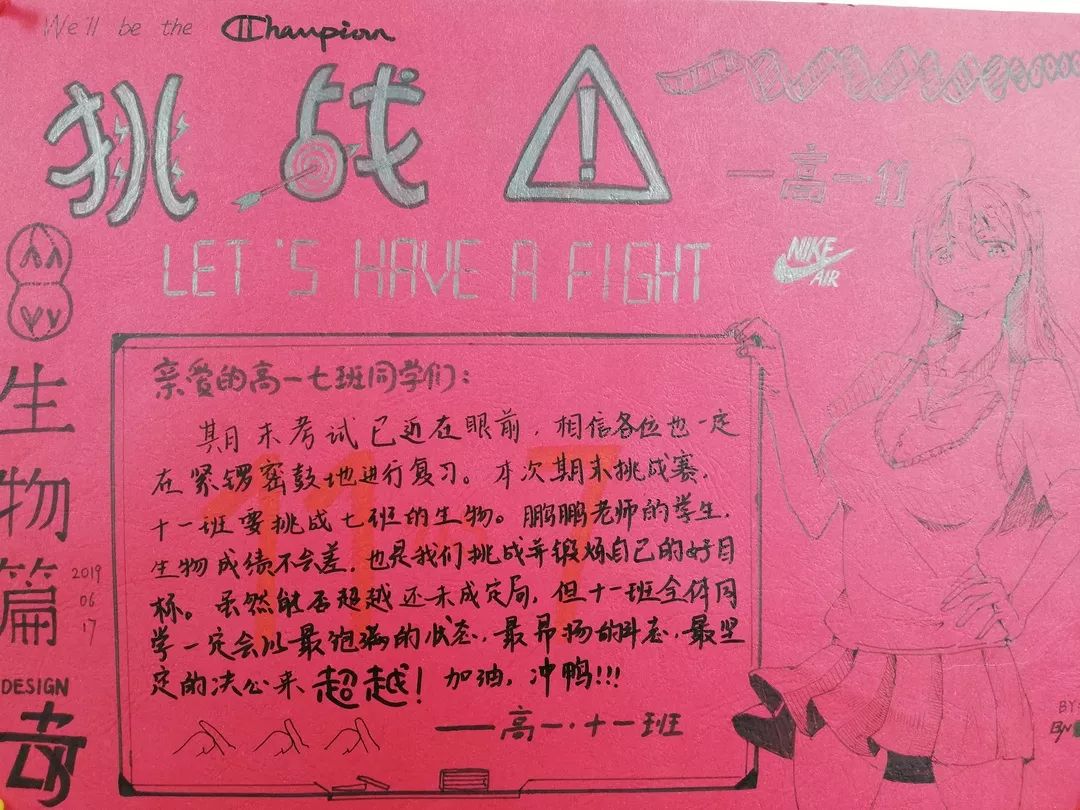 We'll be the Champion
挑战
一高一11
LET'S HAVE A FIGHT
NIKE
AIR
生物篇
2019
06
17
DESIGN
亲爱的高一七班同学们：
期末考试已近在眼前，相信各位也一定
在紧锣密鼓地进行复习。本次期末挑战赛，
十一班要挑战七班的生物。鹏鹏老师的学生，
生物成绩不会差，也是我们挑战并锻炼自己的好目
标。虽然能否超越还未成定局，但十一班全体同
学一定会以最饱满的状态，最昂扬的斗志，最坚
定的决心来超越！加油，冲鸭!!!
——高一·十一班
11
7
BY